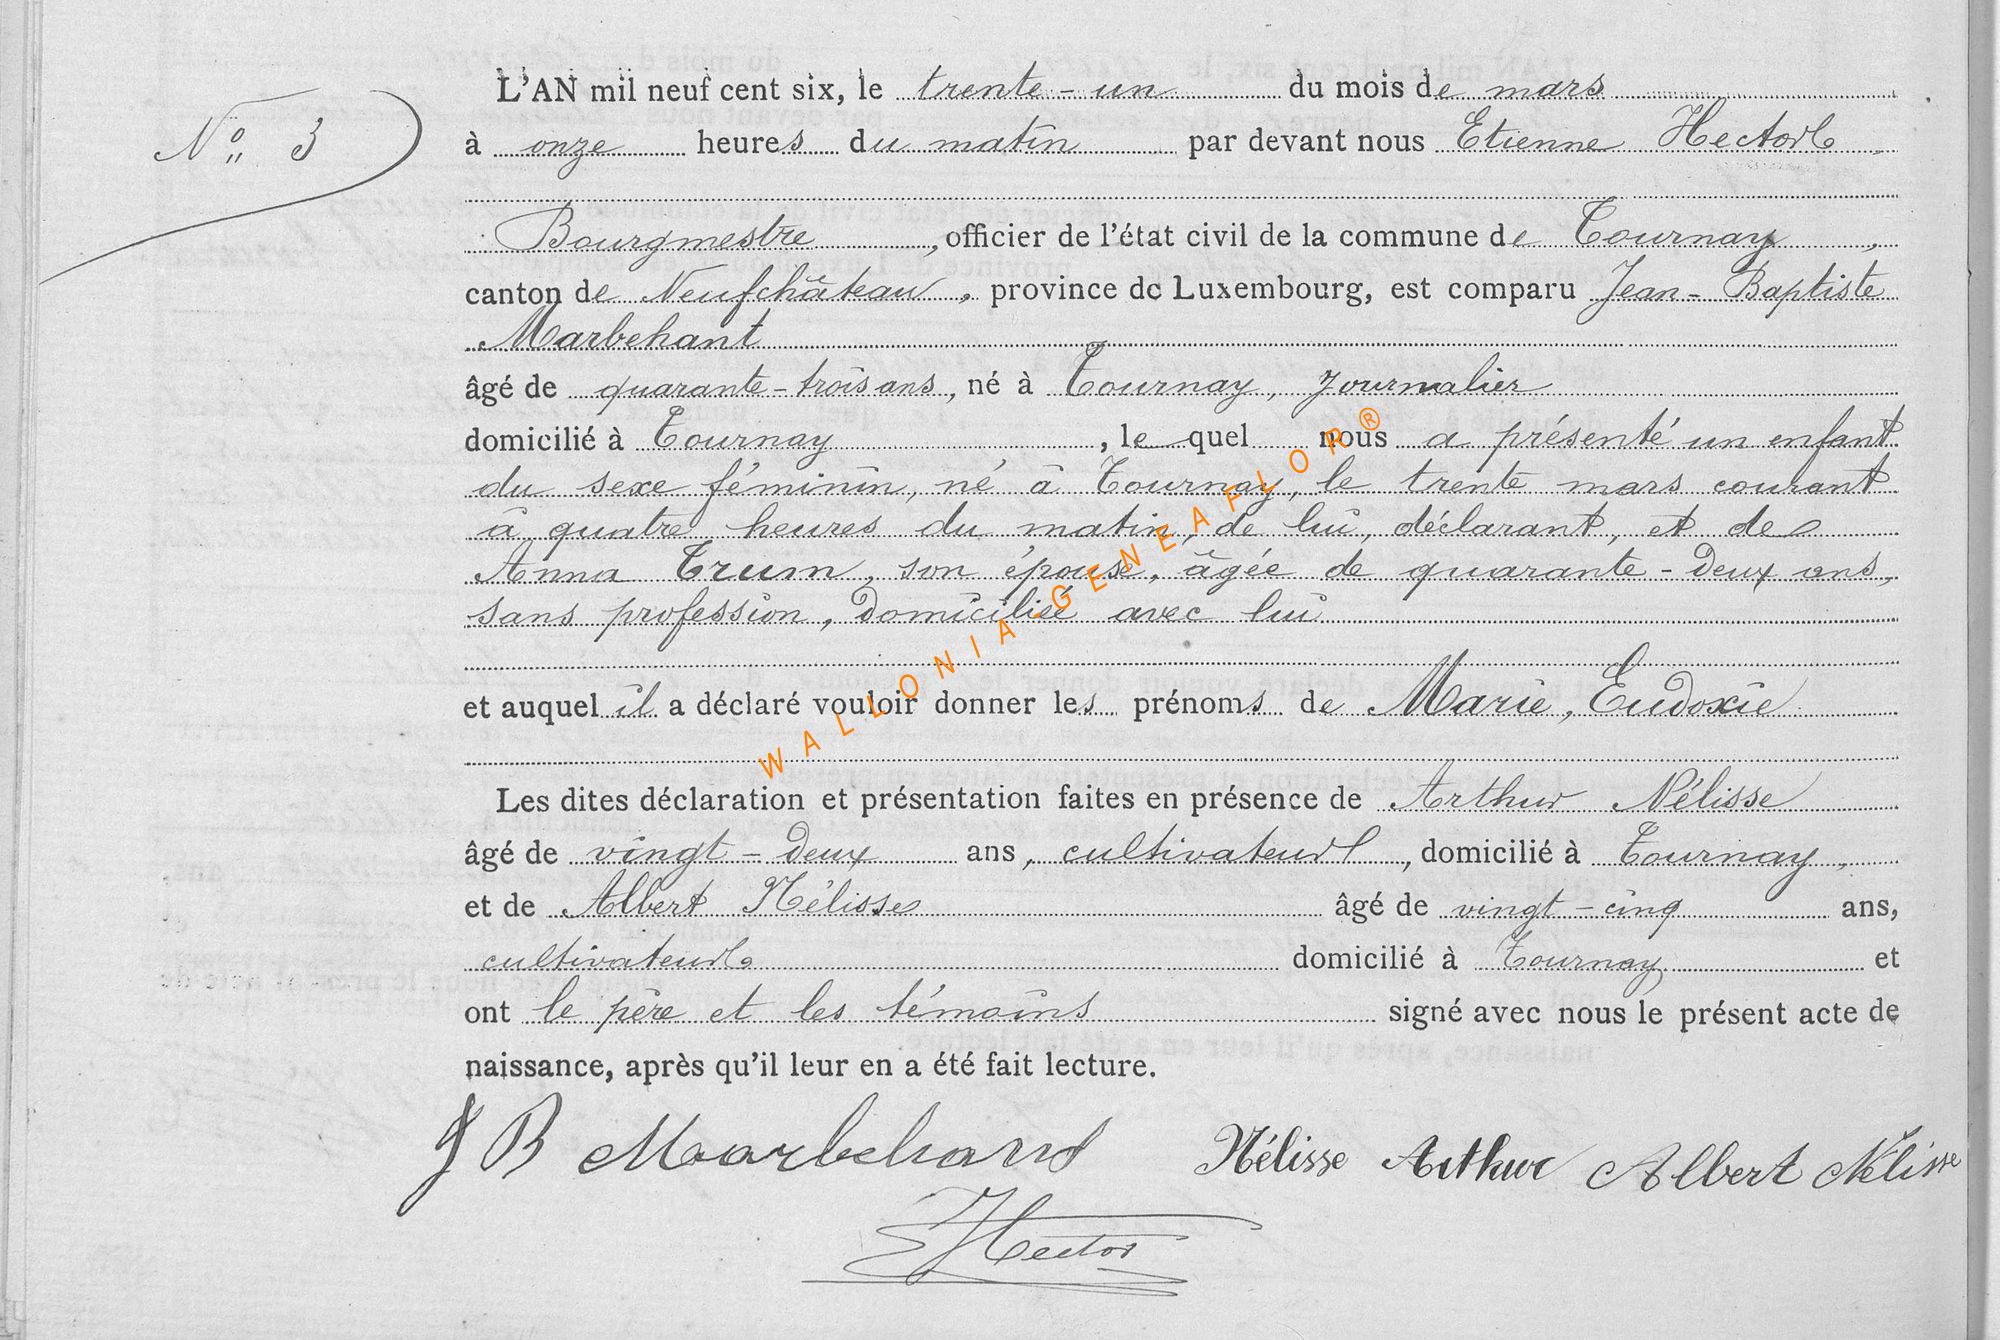 N° 3
L'AN mil neuf cent six, le trente-un du mois de mars
à onze heures du matin par devant nous Etienne Hector
Bourgmestre, officier de l'état civil de la commune de Tournay,
canton de Neufchâteau, province de Luxembourg, est comparu Jean-Baptiste
Marbehant
âgé de quarante-trois ans, né à Tournay, journalier
domicilié à Tournay, le quel nous a présenté un enfant
du sexe féminin, né à Tournay, le trente mars courant
à quatre heures du matin, de lui, déclarant, et de
Anna Trum, son épouse, âgée de quarante-deux ans,
sans profession, domiciliée avec lui
et auquel il a déclaré vouloir donner les prénoms de Marie, Eudoxie
WALLONIA-GENEAFLOR®
Les dites déclaration et présentation faites en présence de Arthur Nélisse
âgé de vingt-deux ans, cultivateur, domicilié à Tournay,
et de Albert Nélisse âgé de vingt-cinq ans,
cultivateur domicilié à Tournay et
ont le père et les témoins signé avec nous le présent acte de
naissance, après qu'il leur en a été fait lecture.
J B Marbehant Nélisse Arthur Albert Nélisse
E Hector